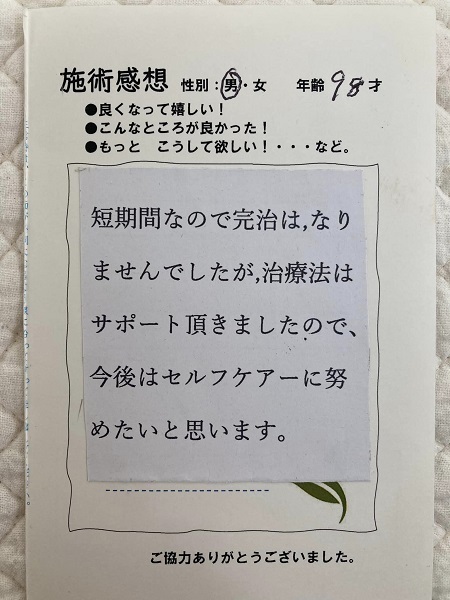 施術感想 性別：男・女 年齢 98才
●良くなって嬉しい！
●こんなところが良かった！
●もっと こうして欲しい！・・・など。
短期間なので完治は,なり
ませんでしたが,治療法は
サポート頂きましたので、
今後はセルフケアーに努
めたいと思います。
ご協力ありがとうございました。